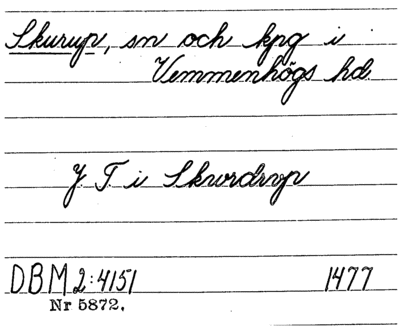 Skurup, sn och kpg i
Vemmenhögs hd.
J. T. i Skwrdrop
DBM 2:4151 1477
Nr 5872.